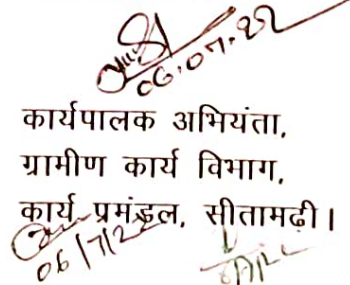 06.07.22
कार्यपालक अभियंता,
ग्रामीण कार्य विभाग,
कार्य प्रमंडल, सीतामढ़ी।
06/7/22